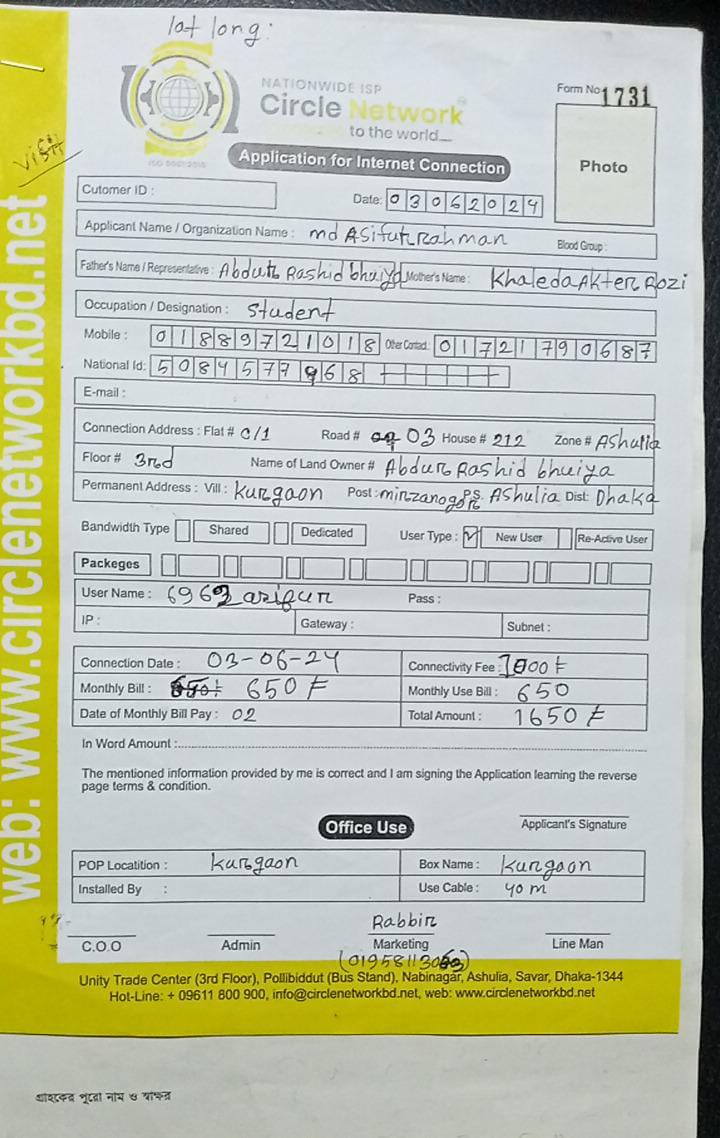 lat long:
NATIONWIDE ISP
Circle Network
to the world...
ISO 9001:2015
Form No 1731
Photo
Visit
Application for Internet Connection
Cutomer ID :
Date: 03062024
Applicant Name / Organization Name : md Asifur Rahman Blood Group :
Father's Name / Representative : Abdur Rashid bhuiya Mother's Name : Khaleda Akter Rozi
Occupation / Designation : Student
Mobile : 01889721018 Other Contact: 01721790687
National Id: 5084577968
E-mail :
Connection Address : Flat # C/1 Road # 03 House # 212 Zone # Ashulia
Floor # 3rd Name of Land Owner # Abdur Rashid bhuiya
Permanent Address : Vill : Kurgaon Post : mirzanogor P.S. Ashulia Dist: Dhaka
Bandwidth Type Shared Dedicated User Type : ✓ New User Re-Active User
Packeges
User Name : 6963 arifur Pass :
IP : Gateway : Subnet :
Connection Date : 03-06-24 Connectivity Fee : 1000 ৳
Monthly Bill : 650 ৳ Monthly Use Bill : 650
Date of Monthly Bill Pay : 02 Total Amount : 1650 ৳
In Word Amount :
The mentioned information provided by me is correct and I am signing the Application learning the reverse
page terms & condition.
Office Use
Applicant's Signature
POP Locatition : Kurgaon Box Name : Kurgaon
Installed By : Use Cable : 40 m
Rabbir
C.O.O Admin Marketing Line Man
Unity Trade Center (3rd Floor), Pollibiddut (Bus Stand), Nabinagar, Ashulia, Savar, Dhaka-1344
Hot-Line: + 09611 800 900, info@circlenetworkbd.net, web: www.circlenetworkbd.net
web: www.circlenetworkbd.net
গ্রাহকের পুরো নাম ও স্বাক্ষর